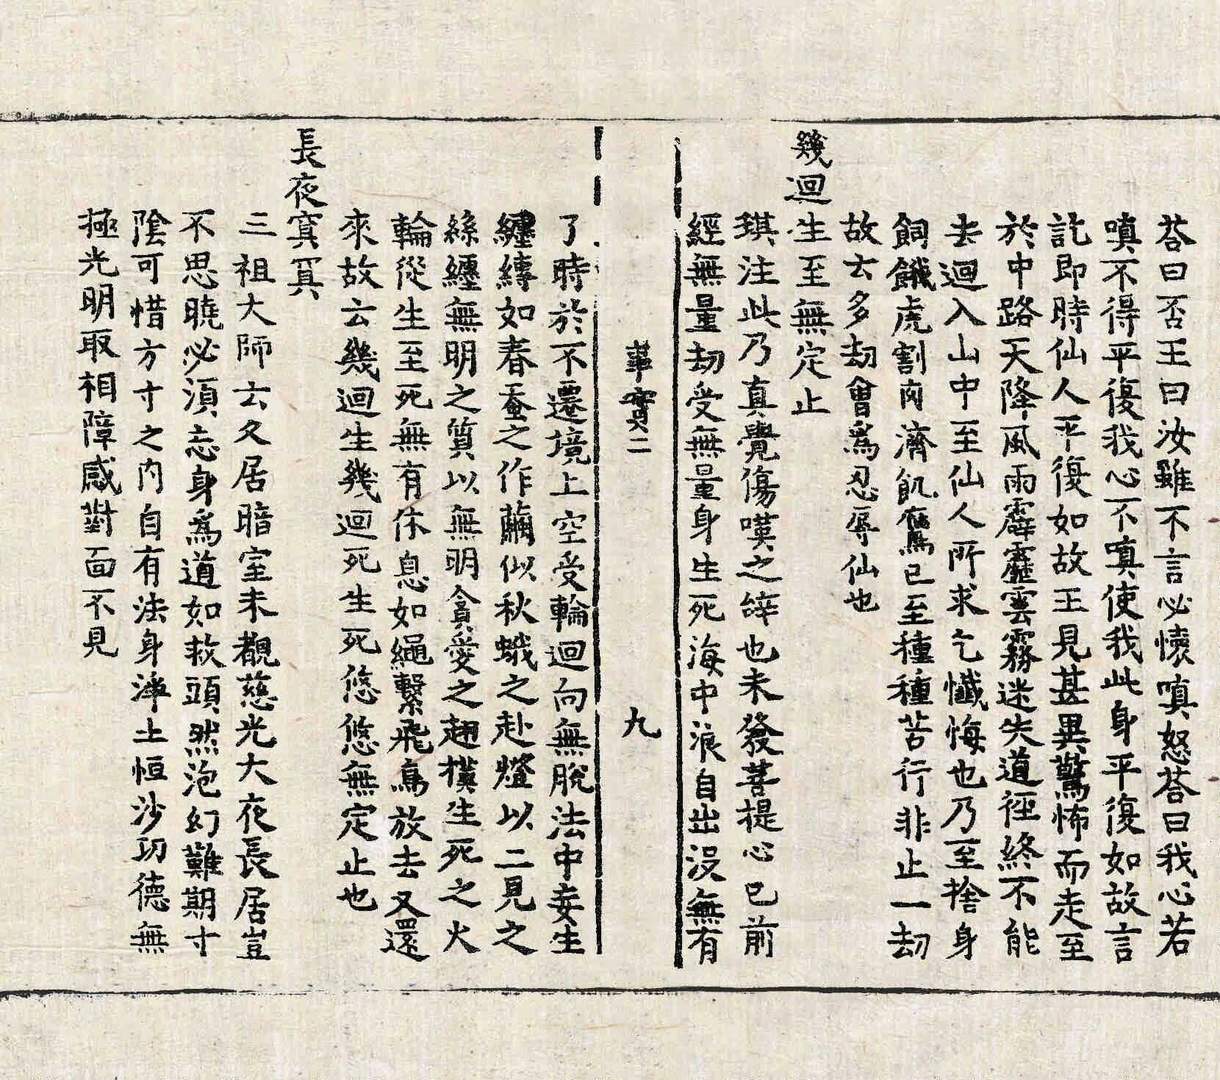 荅曰否王曰汝雖不言必懷嗔怒荅曰我心若
嗔不得平復我心不嗔使我此身平復如故言
訖即時仙人平復如故王見甚異驚怖而走至
於中路天降風雨霹靂雲霧迷失道徑終不能
去迴入山中至仙人所求乞懺悔也乃至捨身
飼餓虎割肉濟飢鷹已至種種苦行非止一劫
故云多劫曾爲忍辱仙也
幾迴生至無定止
琪注此乃真覺傷嘆之辝也未發菩提心已前
經無量劫受無量身生死海中浪自出没無有
華賣二
九
了時於不遷境上空受輪迴向無脫法中妄生
纏縛如春蚕之作繭似秋蛾之赴燈以二見之
絲纏無明之質以無明貪愛之翅撲生死之火
輪從生至死無有休息如繩繫飛鳥放去又還
來故云幾迴生幾迴死生死悠悠無定止也
長夜冥冥
三祖大師云久居暗室未覩慈光大夜長居豈
不思曉必湏忘身爲道如救頭然泡幻難期寸
陰可惜方寸之内自有法身淨土恒沙功德無
極光明取相障惑對面不見